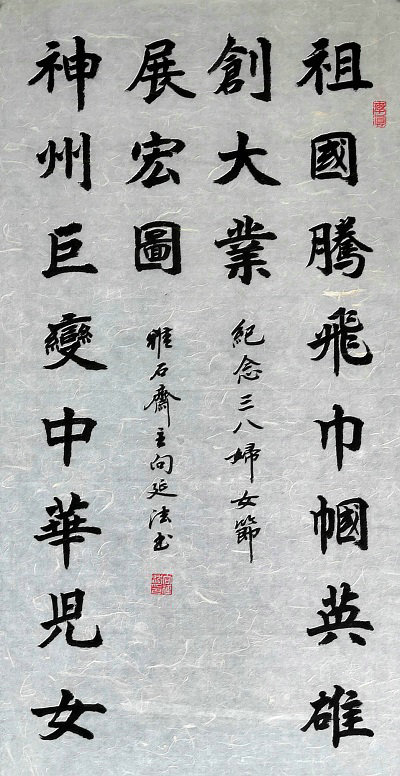 祖國騰飛巾幗英雄
創大業
紀念三八婦女節
神州巨變中華児女
展宏圖
雅石齋主向延法书